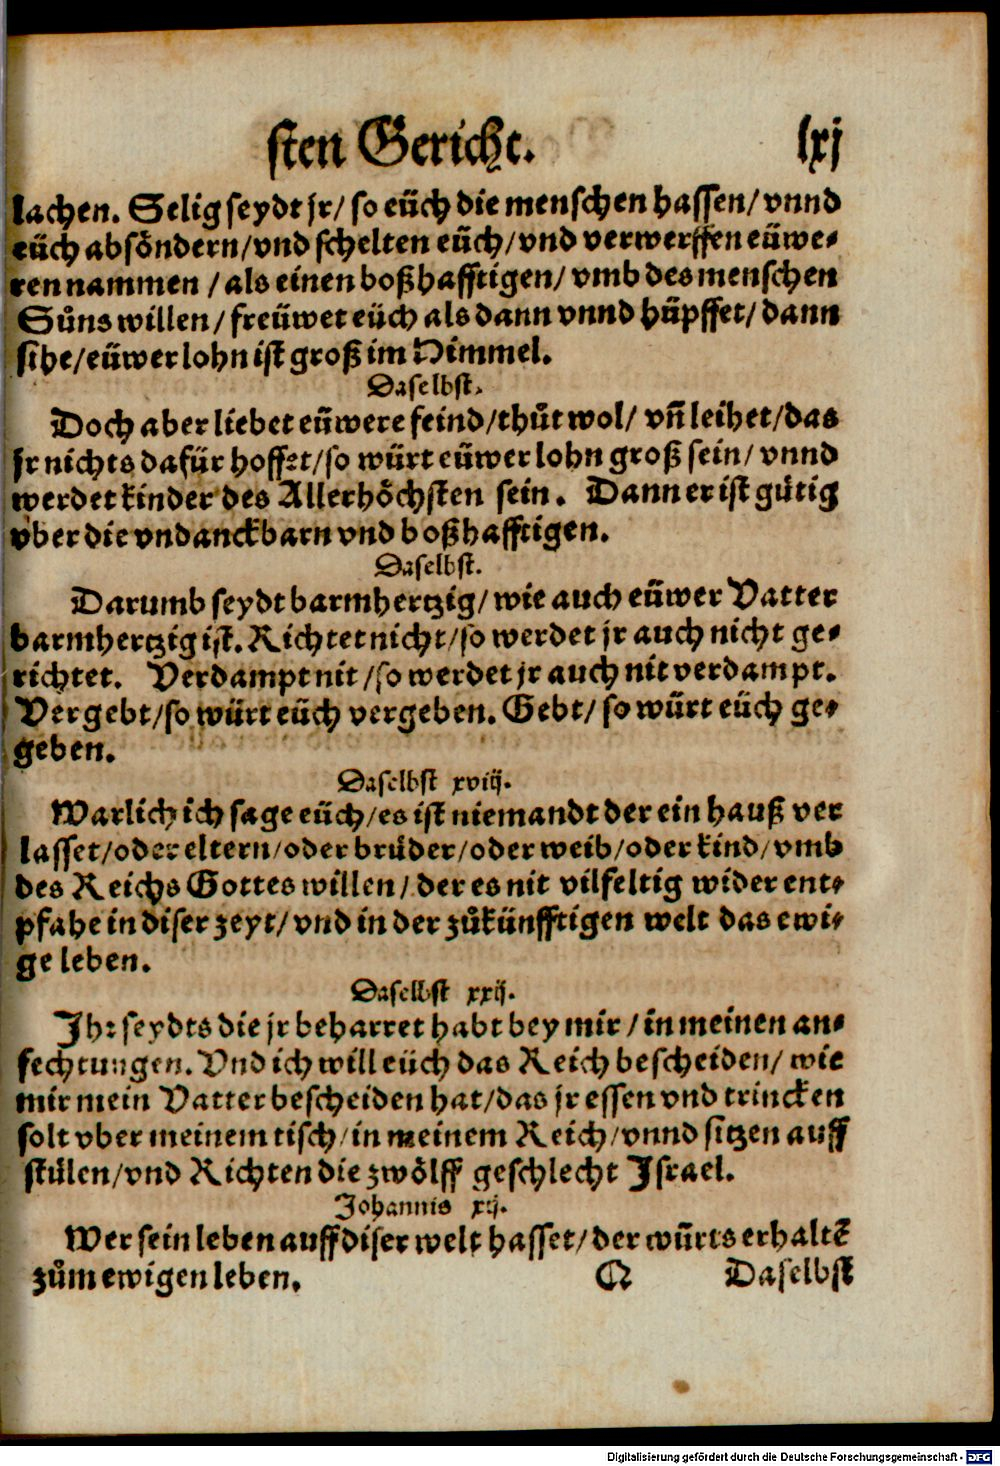 sten Gericht. lxj
lachen. Selig seydt jr/ so eüch die menschen hassen/ vnnd
eüch absöndern/vnd schelten eüch/vnd verwerffen eüwe⸗
ren nammen /als einen boßhafftigen/ vmb des menschen
Sůns willen/ freüwet eüch als dann vnnd hüpffet/ dann
sihe/eüwer lohn ist groß im Himmel.
Daselbst.
Doch aber liebet eüwere feind/thůt wol/ vñ leihet/das
jr nichts dafür hoffet/so würt eüwer lohn groß sein/ vnnd
werdet kinder des Allerhöchsten sein. Dann er ist gütig
vber die vndanckbarn vnd boßhafftigen.
Daselbst.
Darumb seydt barmhertzig/ wie auch eüwer Vatter
barmhertzig ist. Richtet nicht/so werdet jr auch nicht ge⸗
richtet. Verdampt nit /so werdet jr auch nit verdampt.
Vergebt/so würt eüch vergeben. Gebt/ so würt eüch ge⸗
geben.
Daselbst xviij.
Warlich ich sage eüch/es ist niemandt der ein hauß ver
lasset/oder eltern/oder brüder/oder weib/oder kind/vmb
des Reichs Gottes willen/ der es nit vilfeltig wider ent⸗
pfahe in diser zeyt/ vnd in der zůkünfftigen welt das ewi⸗
ge leben.
Daselbst xxij.
Jhr seydts die jr beharret habt bey mir /in meinen an⸗
fechtungen. Vnd ich will eüch das Reich bescheiden/ wie
mir mein Vatter bescheiden hat/das jr essen vnd trincken
solt vber meinem tisch/in meinem Reich/vnnd sitzen auff
stülen/vnd Richten die zwölff geschlecht Jsrael.
Johannis xij.
Wer sein leben auff diser welt hasset/der würts erhaltẽ
zům ewigen leben. Q Daselbst
Digitalisierung gefördert durch die Deutsche Forschungsgemeinschaft - DFG